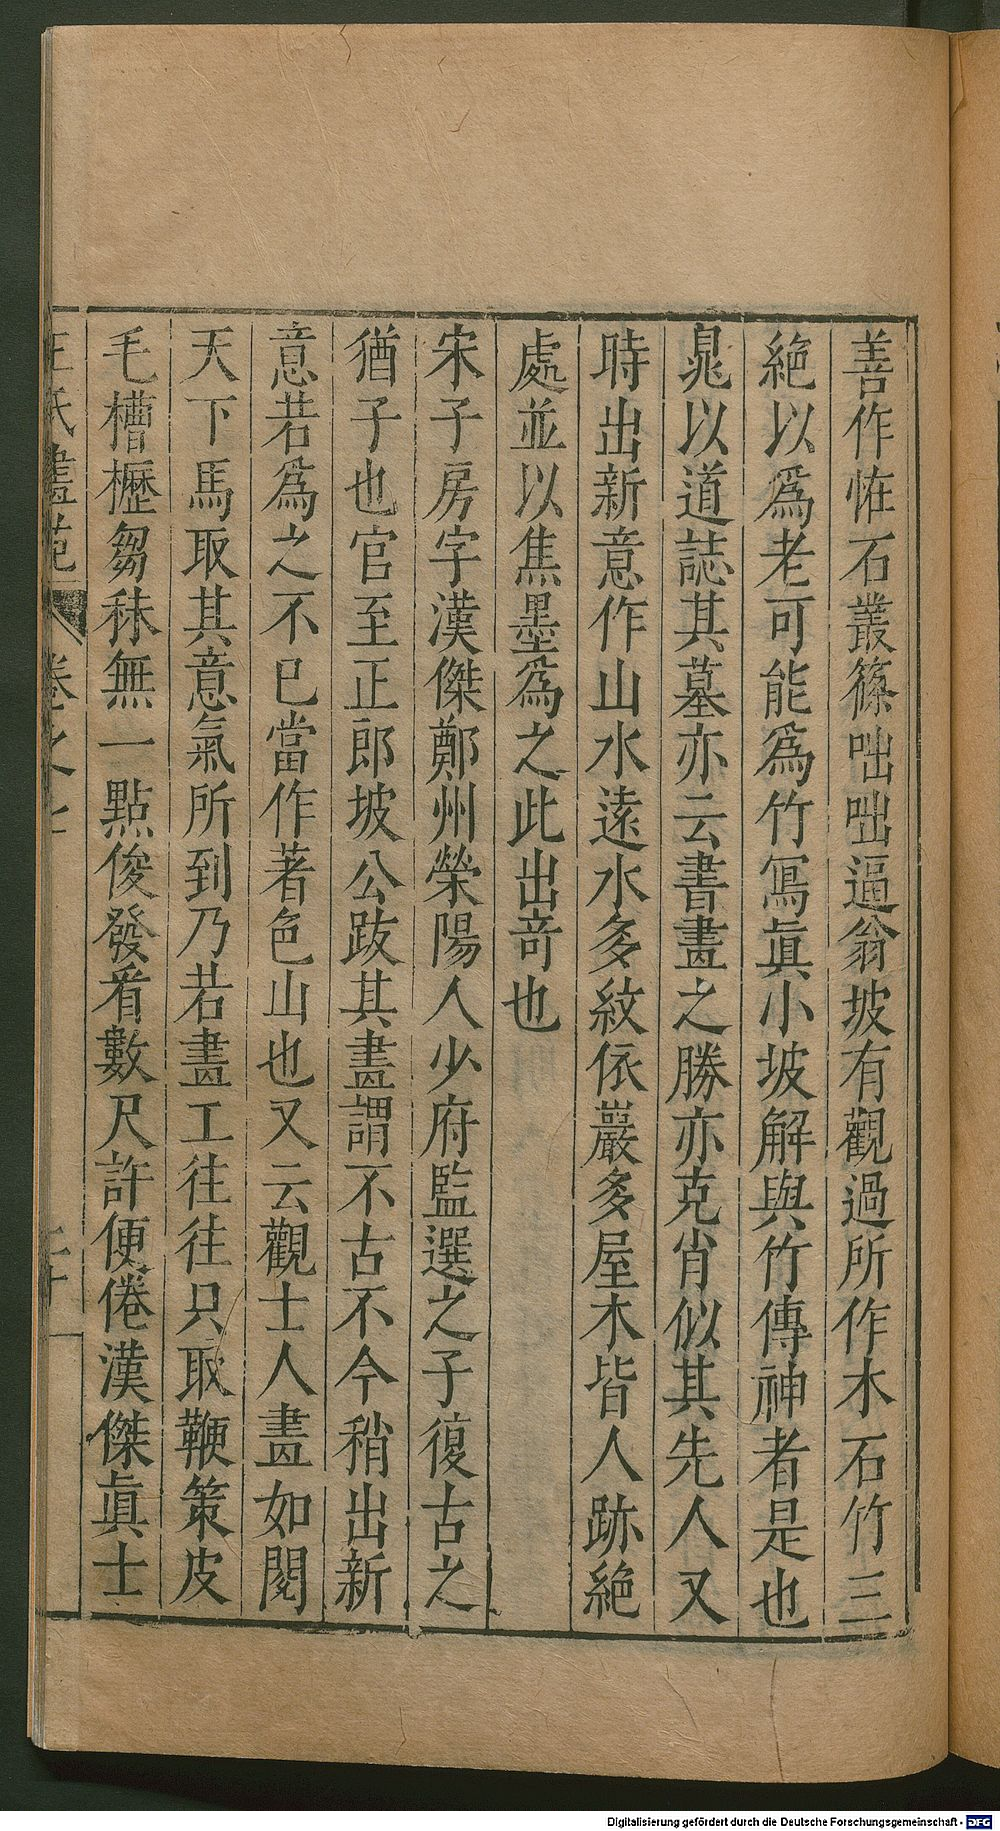 善作恠石叢篠咄咄逼翁坡有觀過所作木石竹三
絶以爲老可能爲竹冩眞小坡解與竹傳神者是也
晁以道誌其墓亦云書畫之勝亦克肖似其先人又
時出新意作山水遠水多紋依巖多屋木皆人跡絶
處並以焦墨爲之此出竒也
宋子房字漢傑鄭州榮陽人少府監選之子復古之
猶子也官至正郎坡公跋其畫謂不古不今稍出新
意若爲之不已當作著色山也又云觀士人畫如閱
天下馬取其意氣所到乃若畫工往往只取鞭策皮
毛槽櫪芻秣無一點俊發看數尺許便倦漢傑眞士
王氏畫苑 卷之七
Digitalisierung gefördert durch die Deutsche Forschungsgemeinschaft - DFG